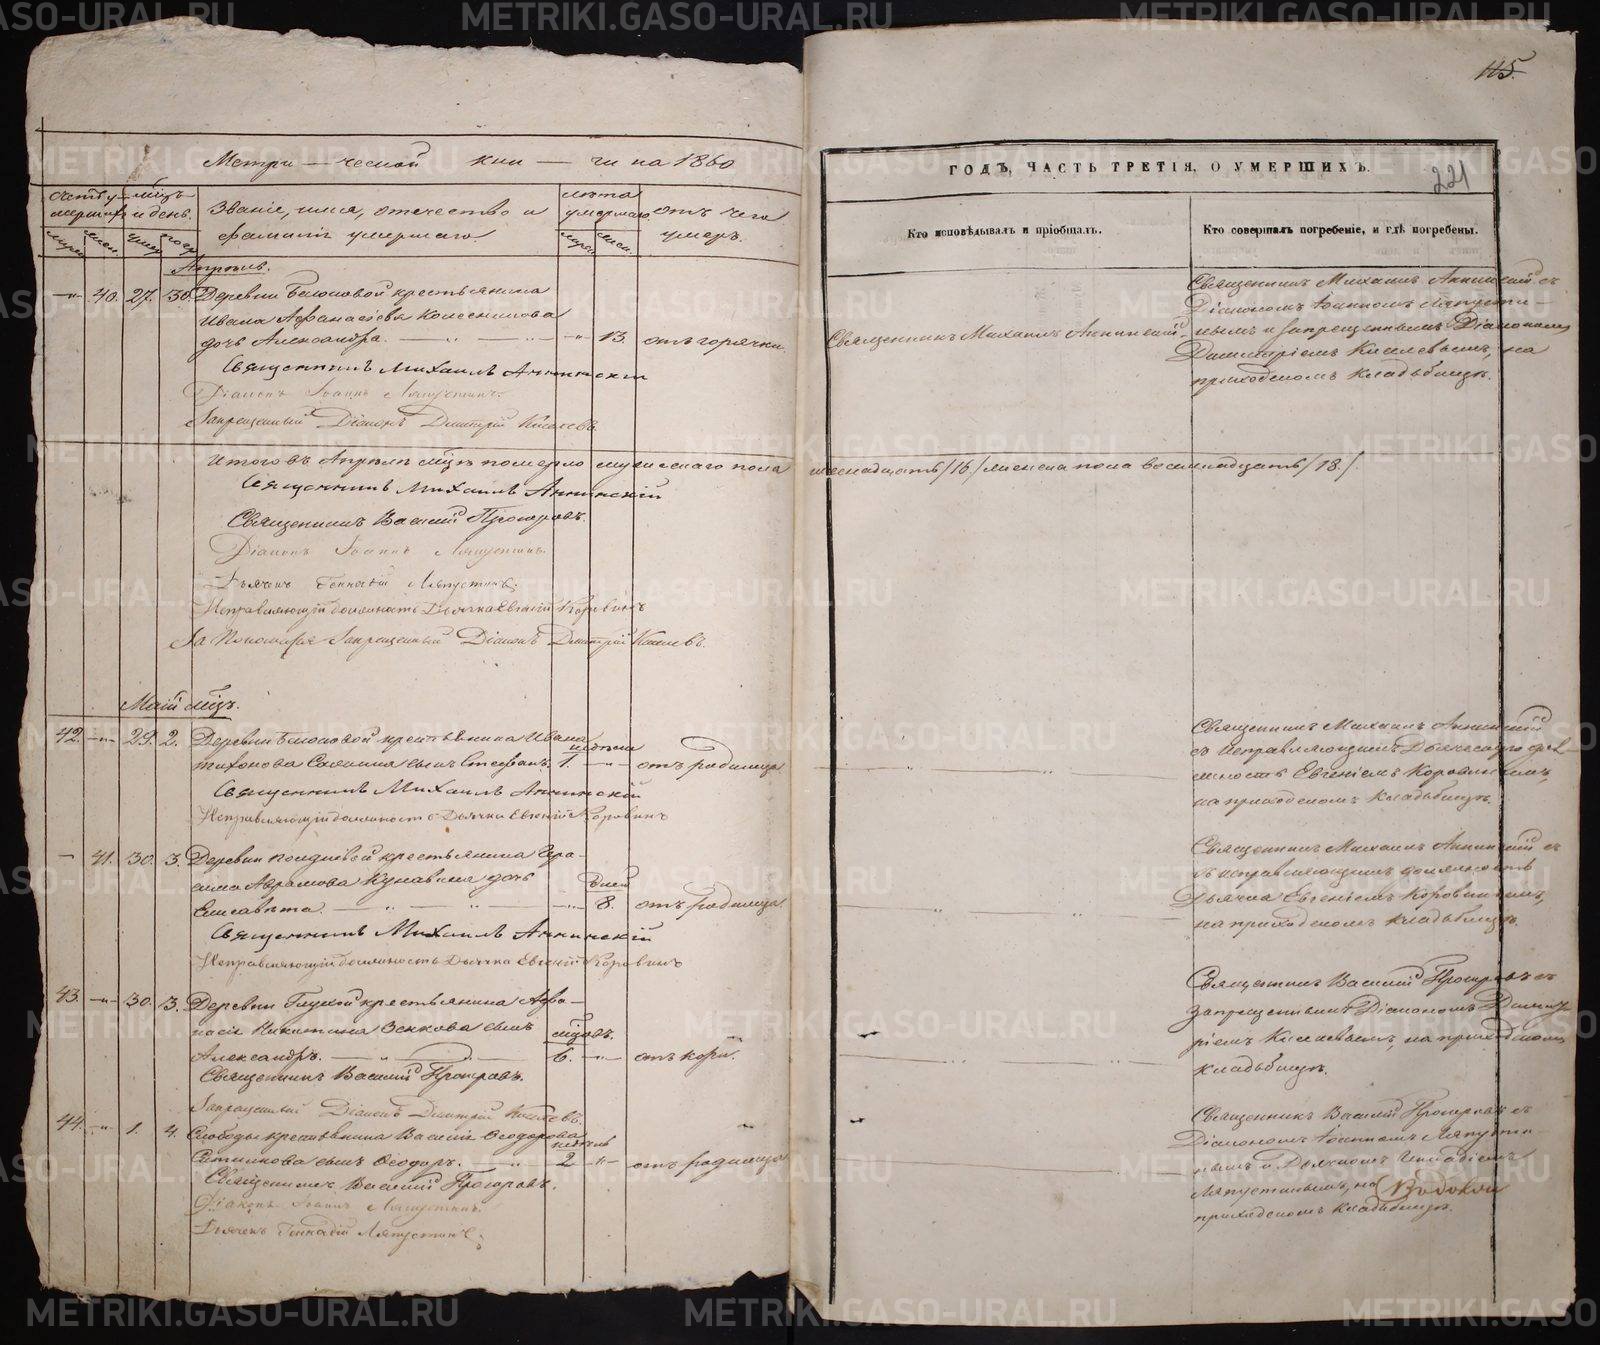 115.
221
Метри — ческой кни — ги на 1860
ГОДЪ, ЧАСТЬ ТРЕТІЯ, О УМЕРШИХЪ.
Званіе, имя, отечество и
фамилія умершаго.
лѣта
умершаго
отъ чего
умеръ.
Кто исповѣдывалъ и пріобщалъ.
Кто совершалъ погребеніе, и гдѣ погребены.
Апрѣль.
40. 27. 30. Деревни Белоносовой крестьянина
Ивана Афанасіева Колесникова
дочь Александра. 13. отъ горячки
Священникъ Михаилъ Аннинскій
Діаконъ Іоаннъ Ляпустинъ.
Запрещенный Діаконъ Димитрій Киселевъ.
Священникъ Михаилъ Аннинскій
Священникъ Михаилъ Аннинскій съ
Діакономъ Іоанномъ Ляпусти-
нымъ и запрещеннымъ Діакономъ
Димитріемъ Киселевымъ, на
приходскомъ кладбищѣ.
Итого въ Апрѣлѣ мѣцѣ померло мужескаго пола шеснадцать /16./ женска пола восемнадцать /18./
Священникъ Михаилъ Аннинскій
Священникъ Василій Прогоровъ.
Діаконъ Іоаннъ Ляпустинъ.
Дьячекъ Геннадій Ляпустинъ.
Исправляющій должность Дьячка Евгеній Коровинъ
За Пономаря Запрещенный Діаконъ Димитрій Киселевъ.
Маій мѣцъ.
42. 29. 2. крестьянина Ивана
сынъ Стефанъ. 1. отъ родимца
Священникъ Михаилъ Аннинскій
Исправляющій должность Дьячка Евгеній Коровинъ
Священникъ Михаилъ Аннинскій
съ исправляющимъ Дьяческую дол-
жность Евгеніемъ Коровинымъ,
на приходскомъ кладбищѣ.
41. 30. 3. Деревни крестьянина Гера-
сима Аврамова дочь
дней
Елисавета. 8. отъ родимца
Священникъ Михаилъ Аннинскій
Исправляющій должность Дьячка Евгеній Коровинъ
Священникъ Михаилъ Аннинскій съ
исправляющимъ должность
Дьячка Евгеніемъ Коровинымъ,
на приходскомъ кладбищѣ.
43. 30. 3. Деревни Глухой крестьянина Афа-
насія Никитина Зенкова сынъ
мѣцовъ.
Александръ. 6. отъ кори.
Священникъ Василій Прогоровъ.
Запрещенный Діаконъ Димитрій Киселевъ.
Священникъ Василій Прогоровъ съ
запрещеннымъ Діакономъ Димит-
ріемъ Киселевымъ, на приходскомъ
кладбищѣ.
44. 1. 4. Слободы крестьянина Василія Ѳеодорова
недѣль
Ситникова сынъ Ѳеодоръ. 2 отъ родимца
Священникъ Василій Прогоровъ.
Діаконъ Іоаннъ Ляпустинъ.
Дьячекъ Геннадій Ляпустинъ.
Священникъ Василій Прогоровъ съ
Діакономъ Іоанномъ Ляпусти-
нымъ и Дьячкомъ Геннадіемъ
Ляпустинымъ, на
приходскомъ кладбищѣ.
METRIKI.GASO-URAL.RU